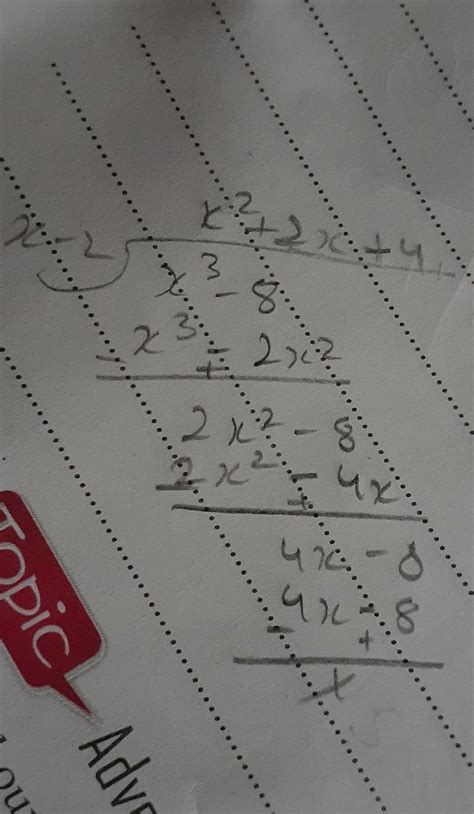 x² + 2x + 4
x - 2
x³ - 8
- x³ - 2x²
+
2x² - 8
- 2x² - 4x
+
4x - 8
- 4x - 8
+
x
TOPIC
Adv